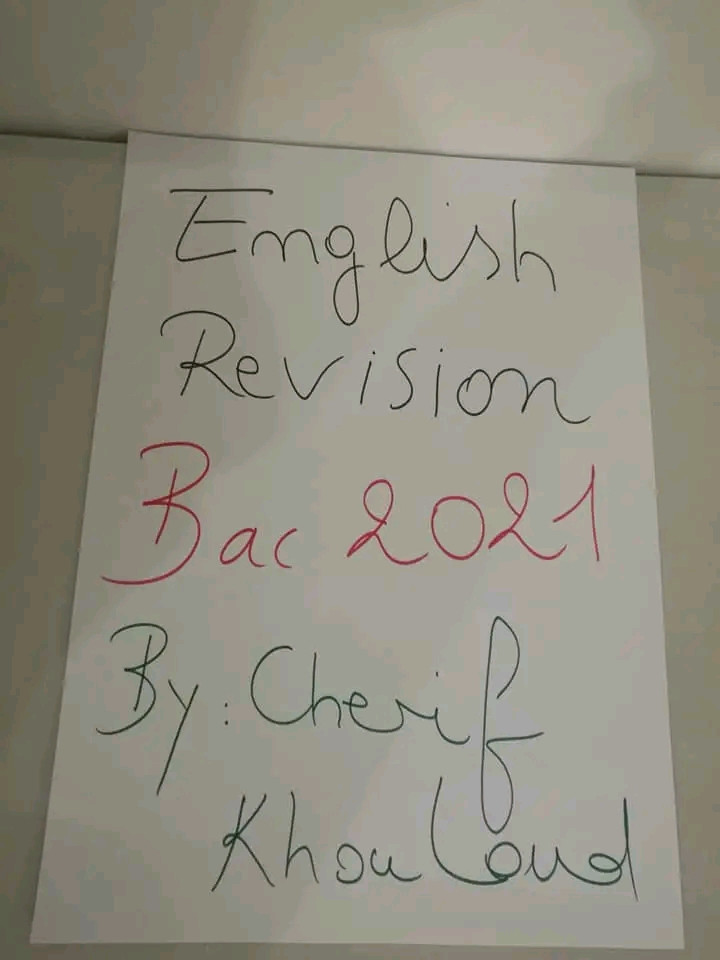 English
Revision
Bac 2021
By: Cherif
Khouloud